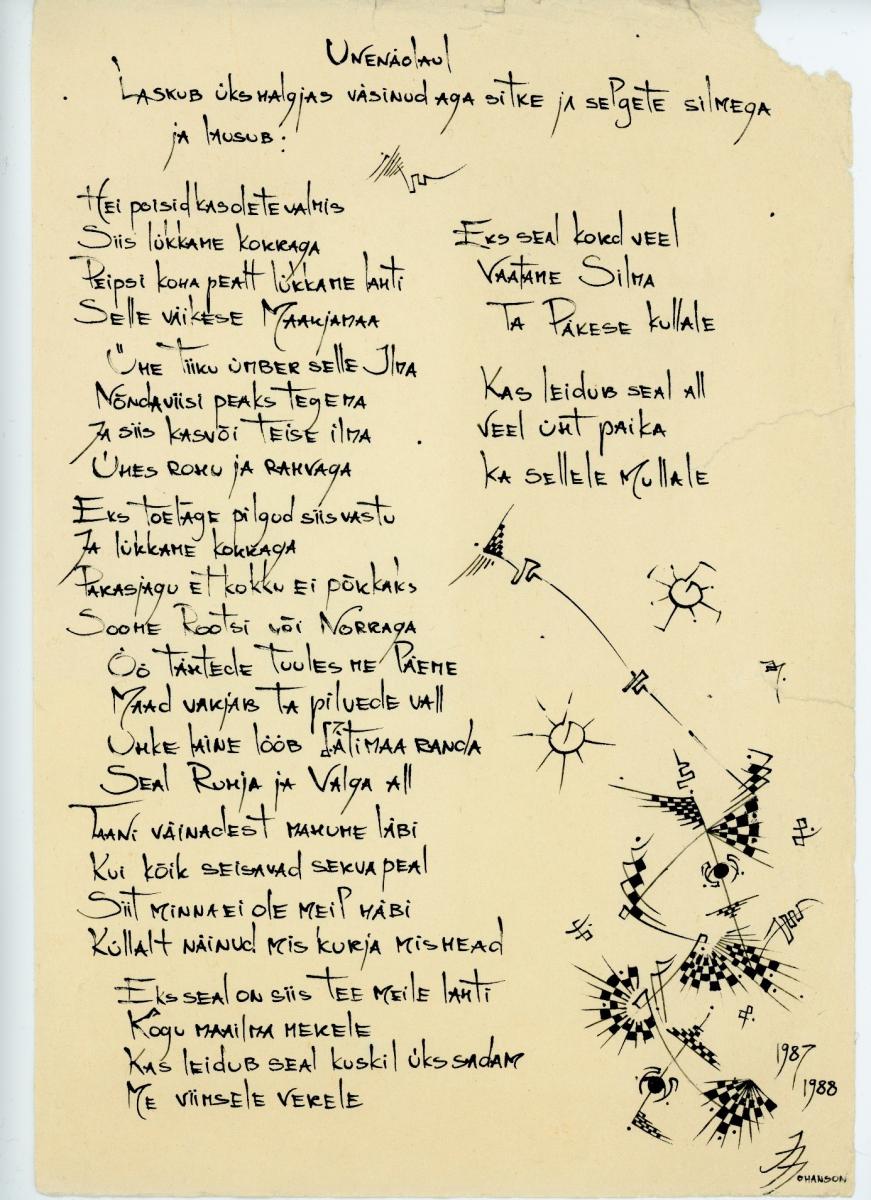 Unenäolaul
Laskub üks halgjas väsinud aga sitke ja selgete silmega
ja lausub:
Hei poisid kas olete valmis
Siis lükkame korraga
Peipsi koha pealt lükkame lahti
Selle väikese Maarjamaa
Ühe tiiru ümber selle Ilma
Nõndaviisi peaks tegema
Ja siis kasvõi teise ilma
Ühes rohu ja rahvaga
Eks toetage pilgud siis vastu
Ja lükkame korraga
Parasjagu et kokku ei põrkaks
Soome Rootsi või Norraga
Öö tähtede tuules me Päeme
Maad varjab ta pilvede vall
Uhke laine lööb Lätimaa randa
Seal Ruhja ja Valga all
Taani väinadest mahume läbi
Kui kõik seisavad serva peal
Siit minna ei ole meil häbi
Küllalt näinud mis kurja mis head
Eks seal on siis tee meile lahti
Kogu maailma merele
Kas leidub seal kuskil üks sadam
Me viimsele verele
Eks seal kord veel
Vaatame Silma
Ta Päkese kullale
Kas leidub seal all
veel üht paika
ka sellele Mullale
1987
1988
Johanson